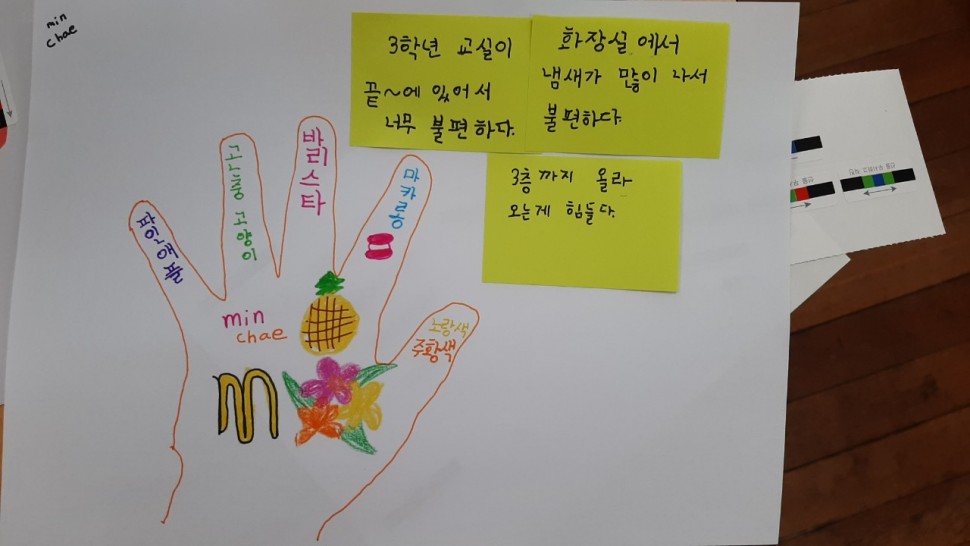 min
chae
3학년 교실이
끝~에 있어서
너무 불편하다.
화장실에서
냄새가 많이 나서
불편하다.
3층까지 올라
오는게 힘들다.
파인애플
고양이
바리스타
마카롱
노랑색
주황색
min
chae
m